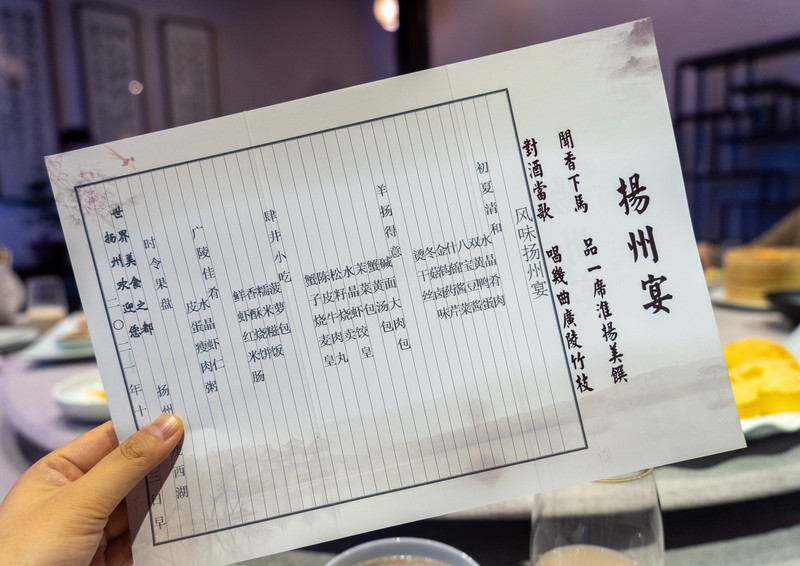 揚州宴
聞香下馬 品一席淮揚美饌
對酒當歌 唱幾曲廣陵竹枝
风味扬州宴
初夏清和
水晶肴肉
双黄鸭蛋
八宝豆酱
什锦酱菜
金钩药芹
冬菇卤味
烫干丝
羊扬得意
碱面大肉包
蟹黄汤包
菜包
水晶虾饺皇
松籽烧卖
陈皮牛肉丸
蟹子烧麦皇
肆井小吃
菠萝包
糯米糍饭
香酥烧饼
鲜虾红米肠
广陵佳肴
水晶虾仁
皮蛋瘦肉粥
时令果盘
世界美食之都
扬州欢迎您
扬州 西湖
二〇二一年十 三日早